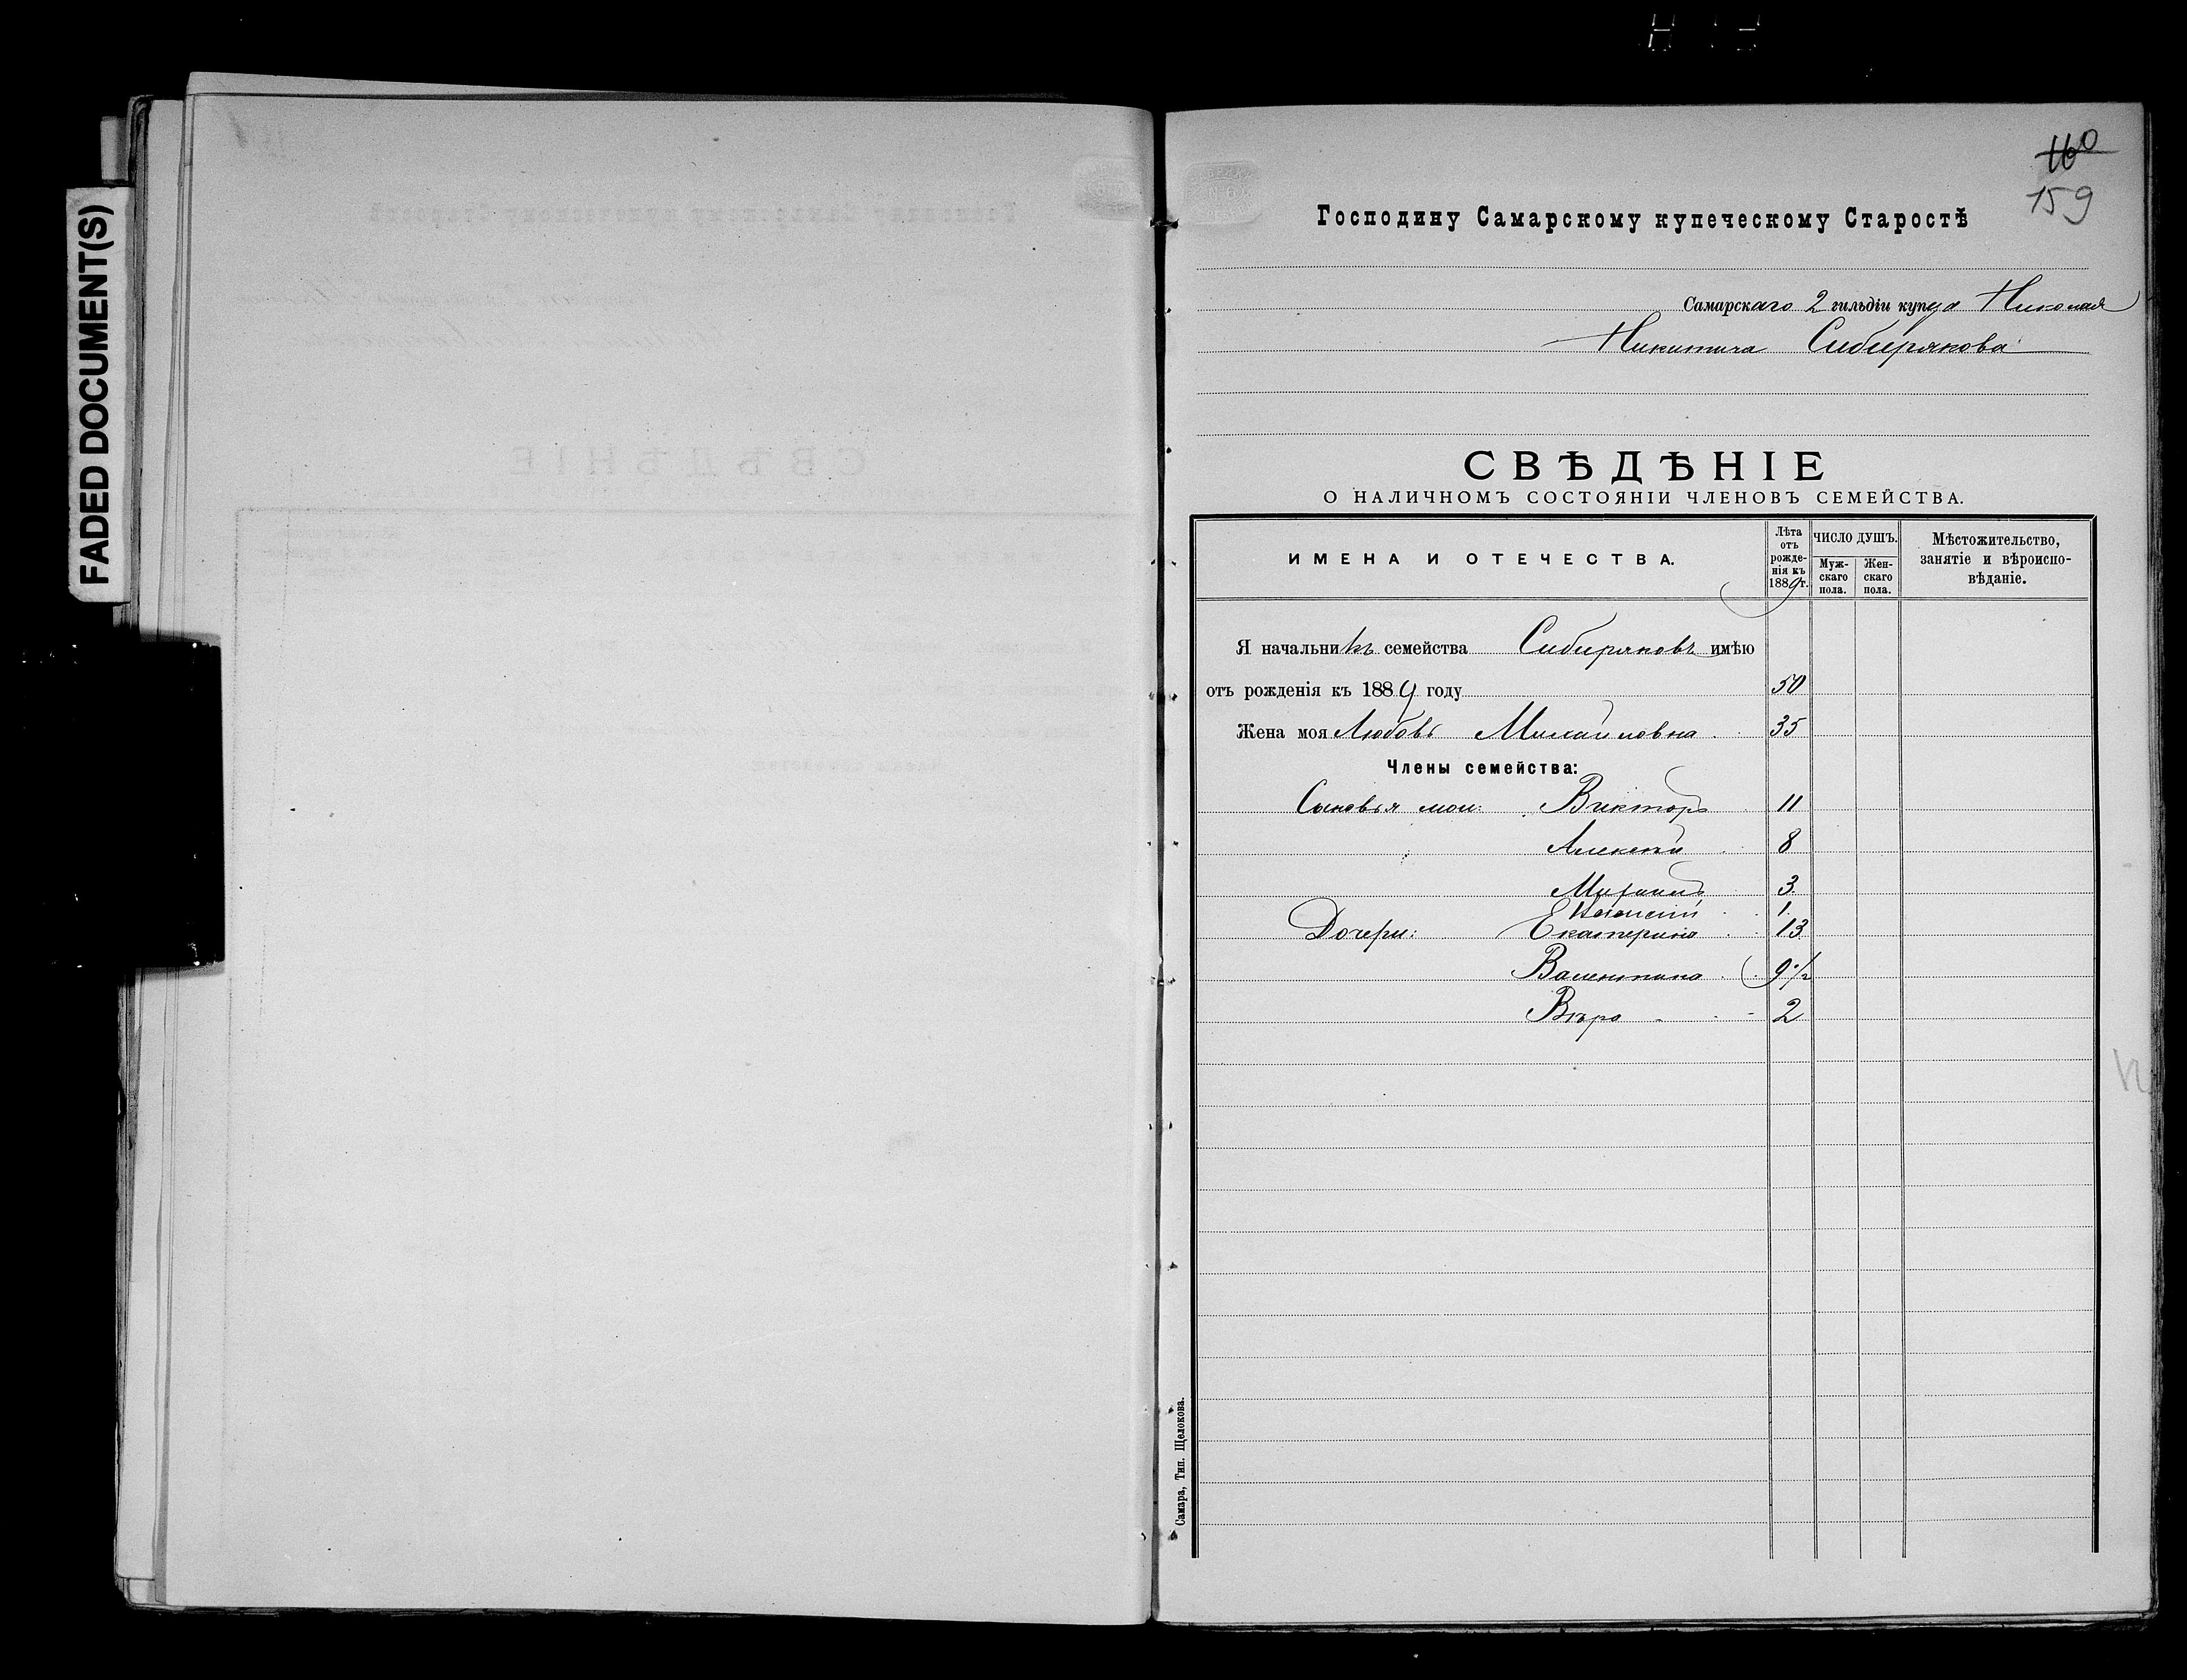 FADED DOCUMENT(S)
160
159
Господину Самарскому купеческому Старостѣ
Самарскаго 2 гильдіи купца Николая
Никитича Сибирякова
СВѢДѢНІЕ
О НАЛИЧНОМЪ СОСТОЯНІИ ЧЛЕНОВЪ СЕМЕЙСТВА.
ИМЕНА И ОТЕЧЕСТВА.
Лѣта отъ рожде-нія къ 1889 г.
ЧИСЛО ДУШЪ.
Муж-скаго пола.
Жен-скаго пола.
Мѣстожительство, занятіе и вѣроиспо-вѣданіе.
Я начальникъ семейства Сибиряковъ имѣю
отъ рожденія къ 1889 году 50
Жена моя Любовь Михайловна 35
Члены семейства:
Сыновья мои: Викторъ 11
Алексѣй 8
Михаилъ 3
1
Дочери: Екатерина 13
Валентина 9 1/2
Вѣра 2
Самара, Тип. Щелокова.